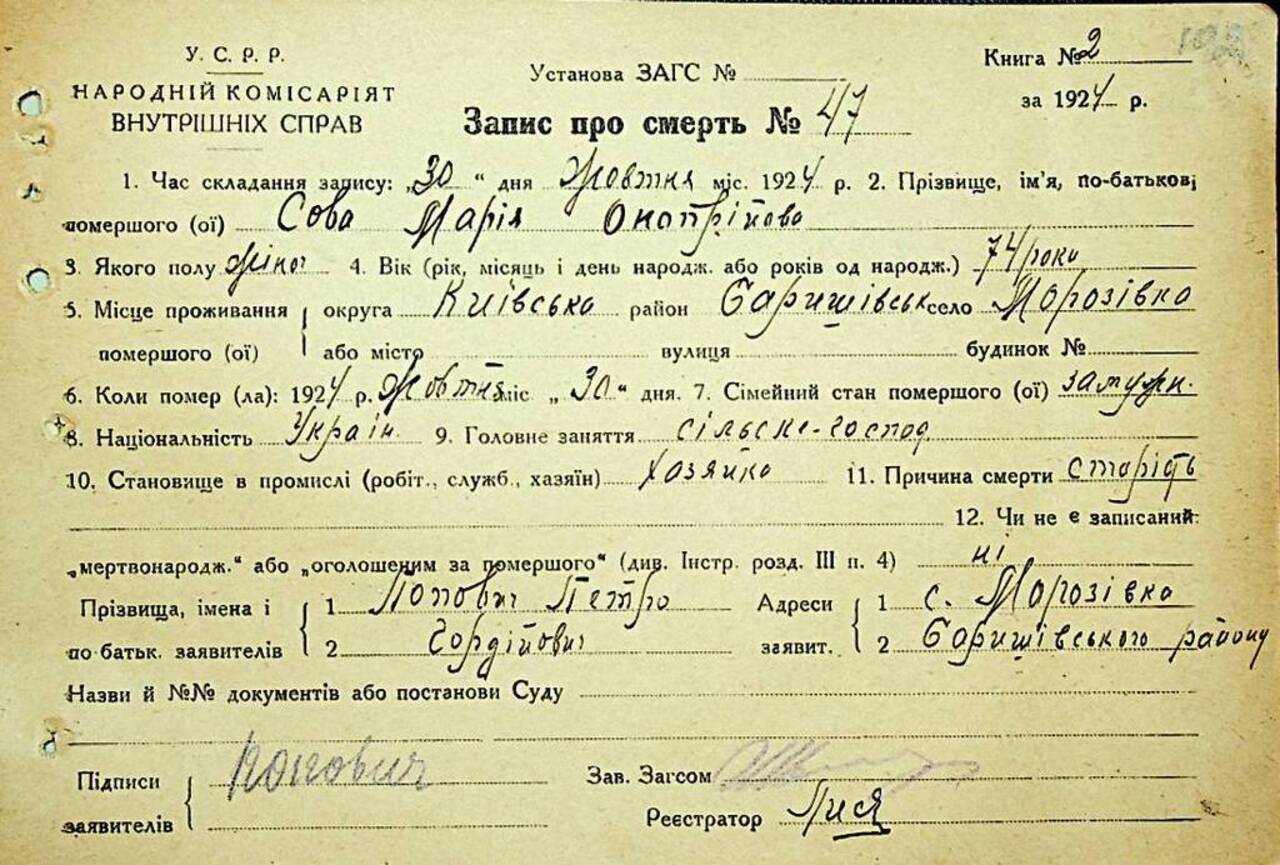 У. С. Р. Р.
НАРОДНІЙ КОМІСАРІЯТ
ВНУТРІШНІХ СПРАВ
Установа ЗАГС №
Книга № 2
за 1924 р.
Запис про смерть № 47
1. Час складання запису: „30“ дня Жовтня міс. 1924 р. 2. Прізвище, ім'я, по-батькові
помершого (ої) Сова Марія Онопрійова
3. Якого полу жіноч 4. Вік (рік, місяць і день народж. або років од народж.) 74 роки
5. Місце проживання округа Київська район Баришівськ село Морозівка
помершого (ої) або місто вулиця будинок №
6. Коли помер (ла): 1924 р. Жовтня міс „30“ дня. 7. Сімейний стан помершого (ої) замужн.
8. Національність Україн. 9. Головне заняття сільське-господ.
10. Становище в промислі (робіт., служб., хазяїн) Хозяйка 11. Причина смерти старість
12. Чи не є записаний:
„мертвонародж.“ або „оголошеним за помершого“ (див. Інстр. розд. III п. 4) ні
Прізвища, імена і 1 Попович Петро Адреси 1 с. Морозівка
по батьк. заявителів 2 Гордійович заявит. 2 Баришівського району
Назви й №№ документів або постанови Суду
Підписи Попович Зав. Загсом
заявителів Реєстратор